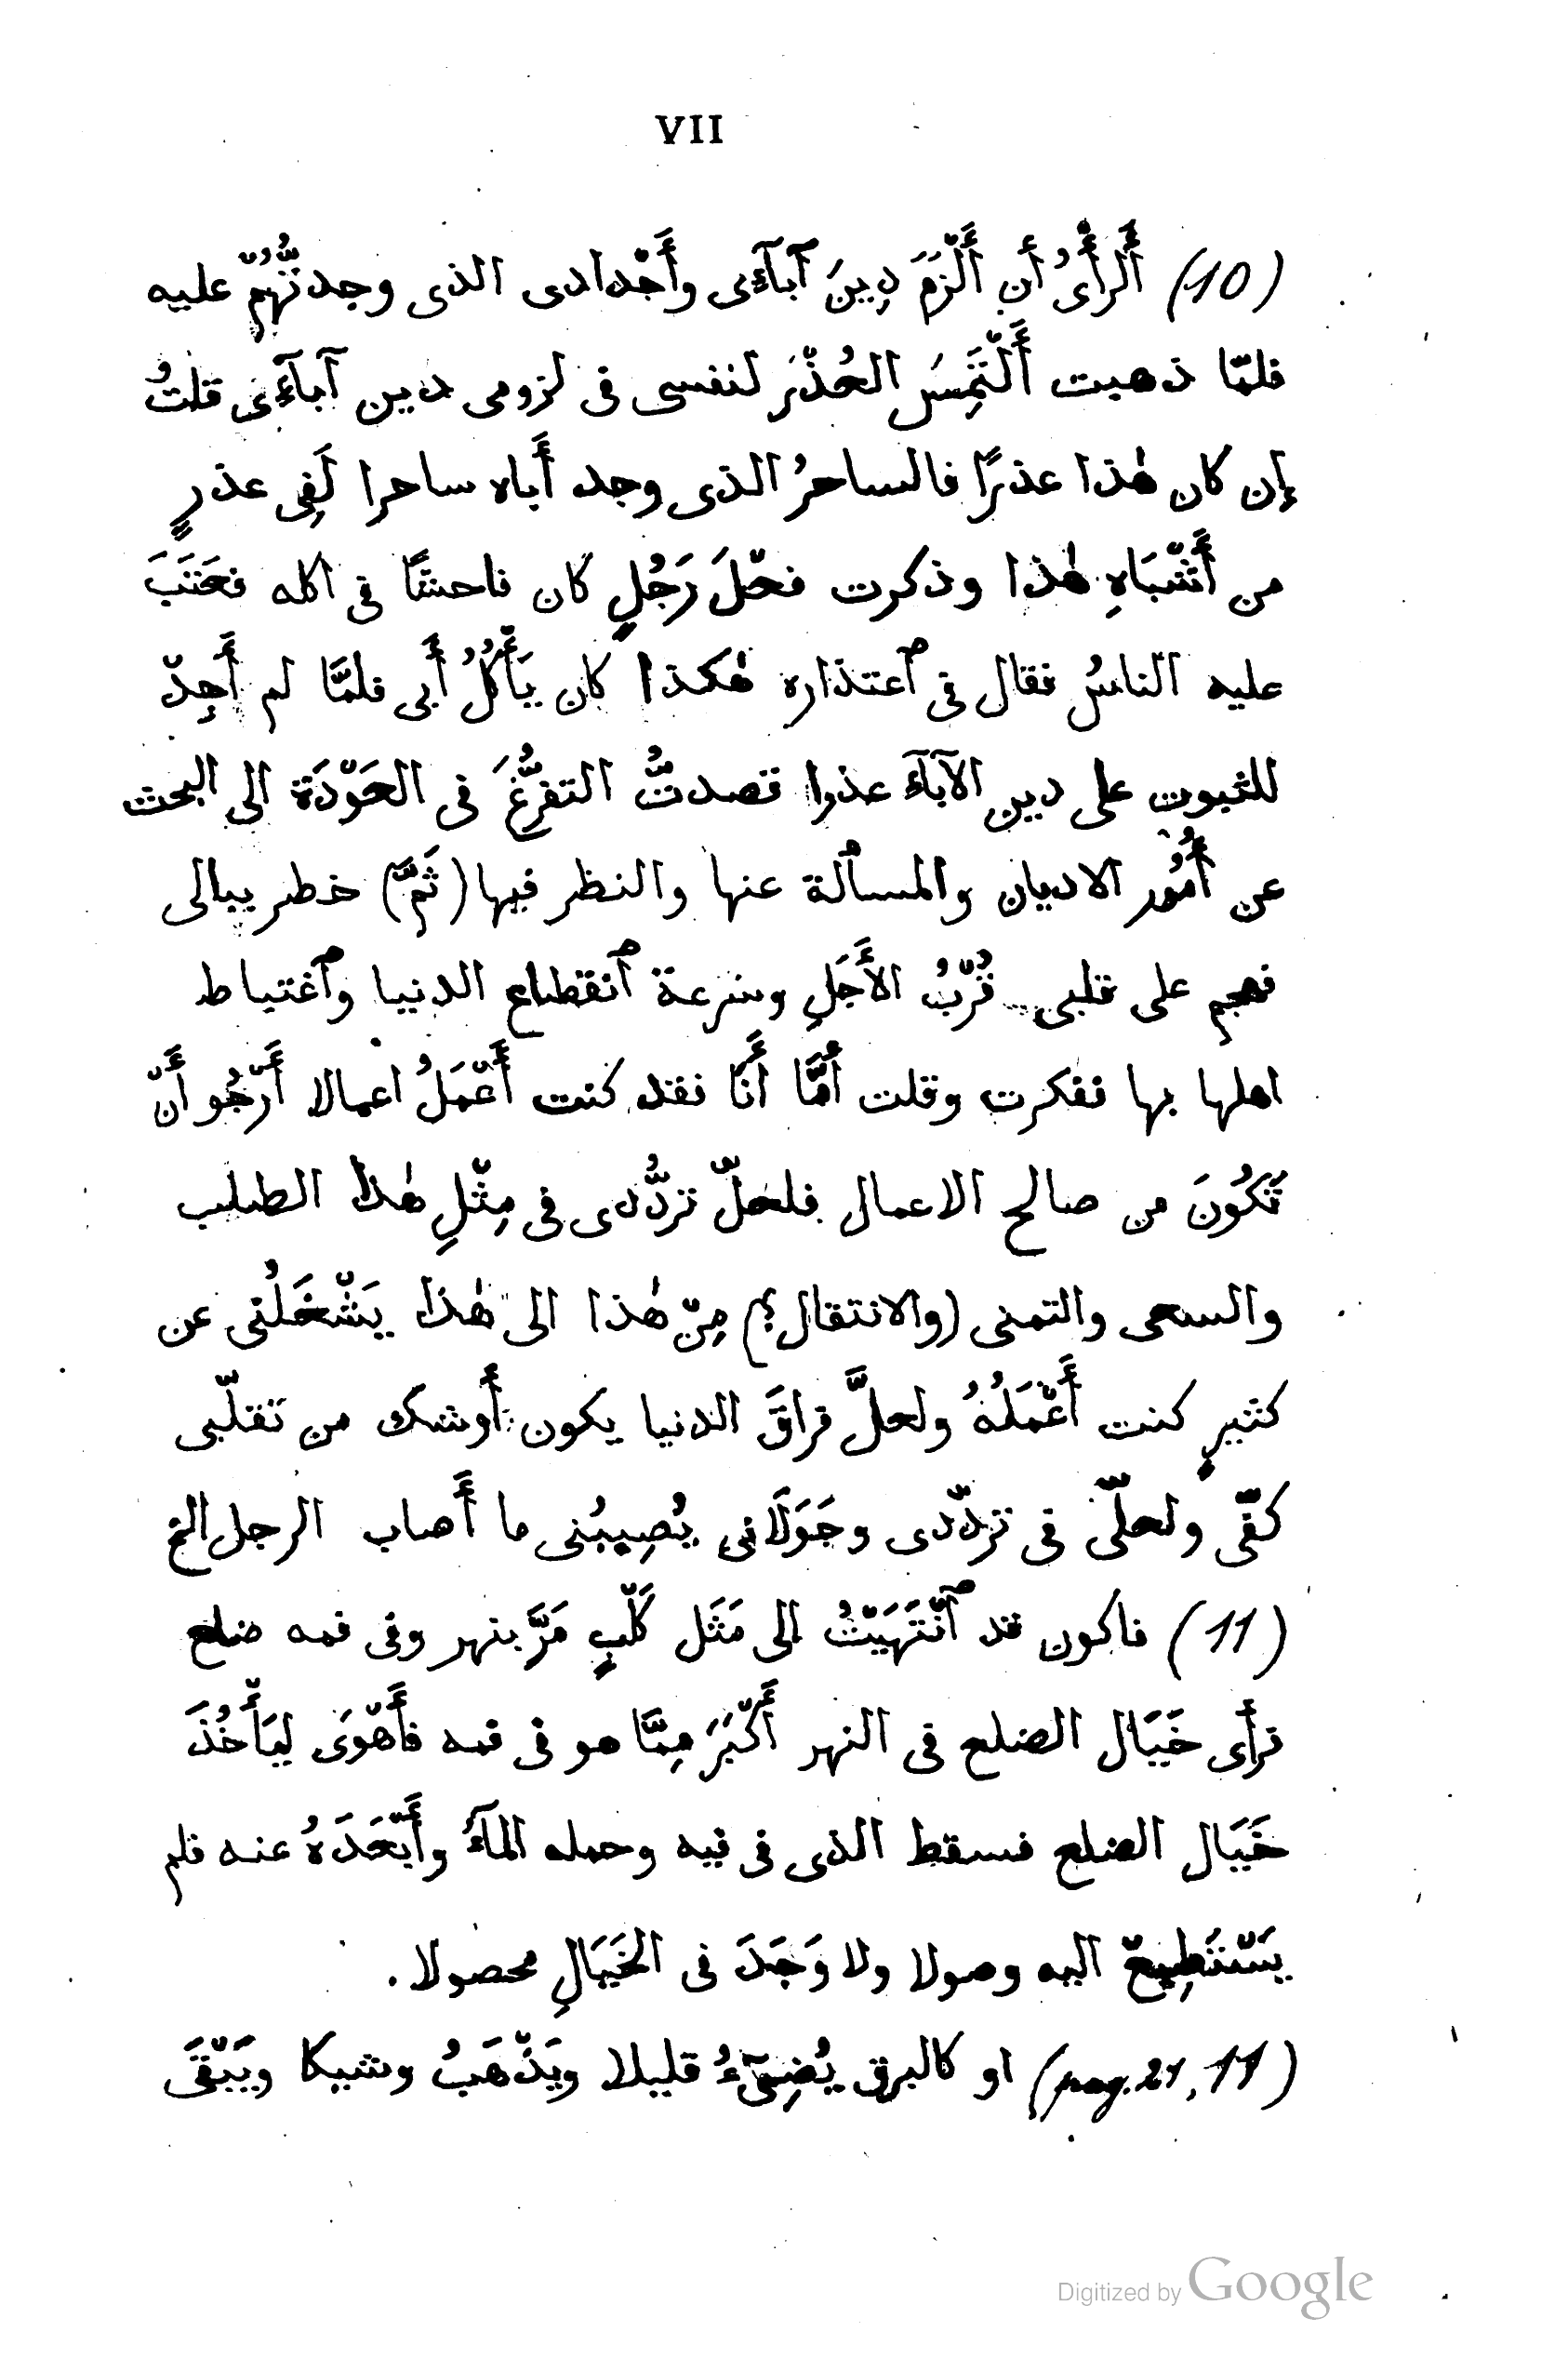 VII
(10) أَلرأْىُ أن أَلْزَمَ دِينَ آبآءِى وأَجْدادى الذى وجدتُّهُمْ عليه
فلمّا ذهبت أَلْتَمِسَ العُذْرَ لنفسى فى لزومى دين آبآءِى قلتُ
إن كان هٰذا عذرًا فالساحرُ الذى وجد أَباه ساحرا لَفِى عذرٍ
من أَشْبَاهِ هٰذا وذكرت فعْلَ رَجُلٍ كان فاحشًا فى اكله فعَتَبَ
عليه الناسُ فقال فى ٱعتذاره هٰكذا كان يَأْكُلُ أَبى فلمَّا لم أَجِدْ
للثبوت على دين الآبآءِ عذرا قصدتُّ التفرُّغَ فى العَوْدَة الى البحث
عن أُمُور الاديان والمسألة عنها والنظر فيها (ثَمَّ) خطر ببالى
فهجم على قلبى قُرْبُ الأَجَلِ وسرعة ٱنقطاع الدنيا وٱغتباط
اهلها بها ففكرت وقلت أَمَّا أَنَا فقد كنت أَعْمَلُ اعمالا أَرْجُو أَنْ
تَكُونَ من صالح الاعمال فلعلّ تردُّدى فى مِثْلِ هٰذا الطلب
والسعى والتمنى (والانتقال؟) مِنْ هٰذا الى هٰذا يَشْغَلُنى عن
كثيرٍ كنت أَعْمَلُهُ ولعلَّ فراقَ الدنيا يكون أَوشك من تقلّبى
كفّى ولعلّى فى تردّدى وجَوَلَانى يُصِيبُنى ما أَصاب الرجل الخ
(11) فاكون قد ٱنْتَهَيْتُ الى مَثَل كَلْبٍ مَرَّ بنهر وفى فمه ضلع
فرأى خَيَال الضلع فى النهر أَكْبَرَ مِمَّا هو فى فمه فأَهْوَى لِيَأْخُذَ
خَيَال الضلع فسقط الذى فى فيه وحمله المآءُ وأَبْعَدَهُ عنه فلم
يَسْتَطِيعْ اليه وصولا ولا وَجَدَ فى الخَيَالِ محصولا.
(pag. 21, 11) او كالبرق يُضِىءُ قليلا ويَذْهَبُ وشيكا ويَبْقَى
Digitized by Google